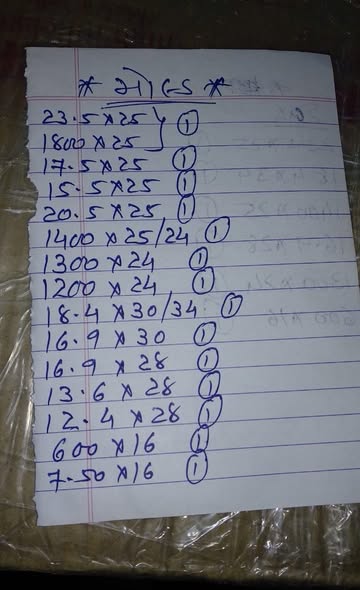 * મોલ્ડ *
23.5 x 25
1800 x 25 } ①
17.5 x 25 ①
15.5 x 25 ①
20.5 x 25 ①
1400 x 25/24 ①
1300 x 24 ①
1200 x 24 ①
18.4 x 30/34 ①
16.9 x 30 ①
16.9 x 28 ①
13.6 x 28 ①
12.4 x 28 ①
600 x 16 ①
7.50 x 16 ①